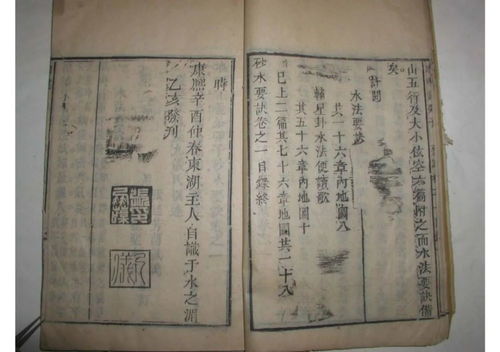 山五行及大小玄空若陽之面水法要訣備
矣
計開
水法要訣
共二十六章內地圖八
輔星卦水法便讀歌
共五十六章內地圖十
已上二篇共七十六章地圖共一十八
砂水要訣卷之一目錄終
時
康熙辛酉仲春東湖主人自識于水之湄
乙亥發刊